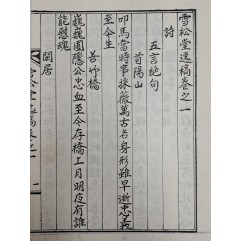 雪松堂逸稿卷之一
詩
五言絶句
首陽山
叩馬當時事採薇萬古名身形雖早逝忠義
至今生
善竹橋
巍巍圃隱公忠血至今存橋上月明夜有誰
能慰魂
閑居